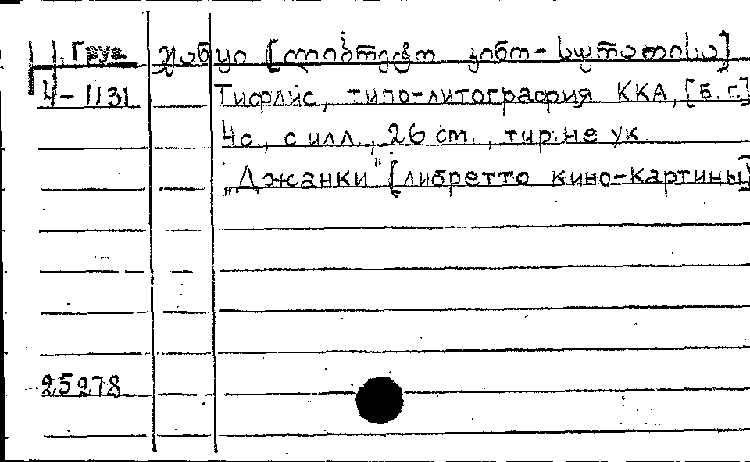 Груз
4-1131
ჯანყი [ლიბრეტო კინო-სურათისა]
Тифлис, типо-литография ККА, [б.г.]
4с., с илл., 26 см., тир. не ук.
„Джанки" [либретто кино-картины]
25278